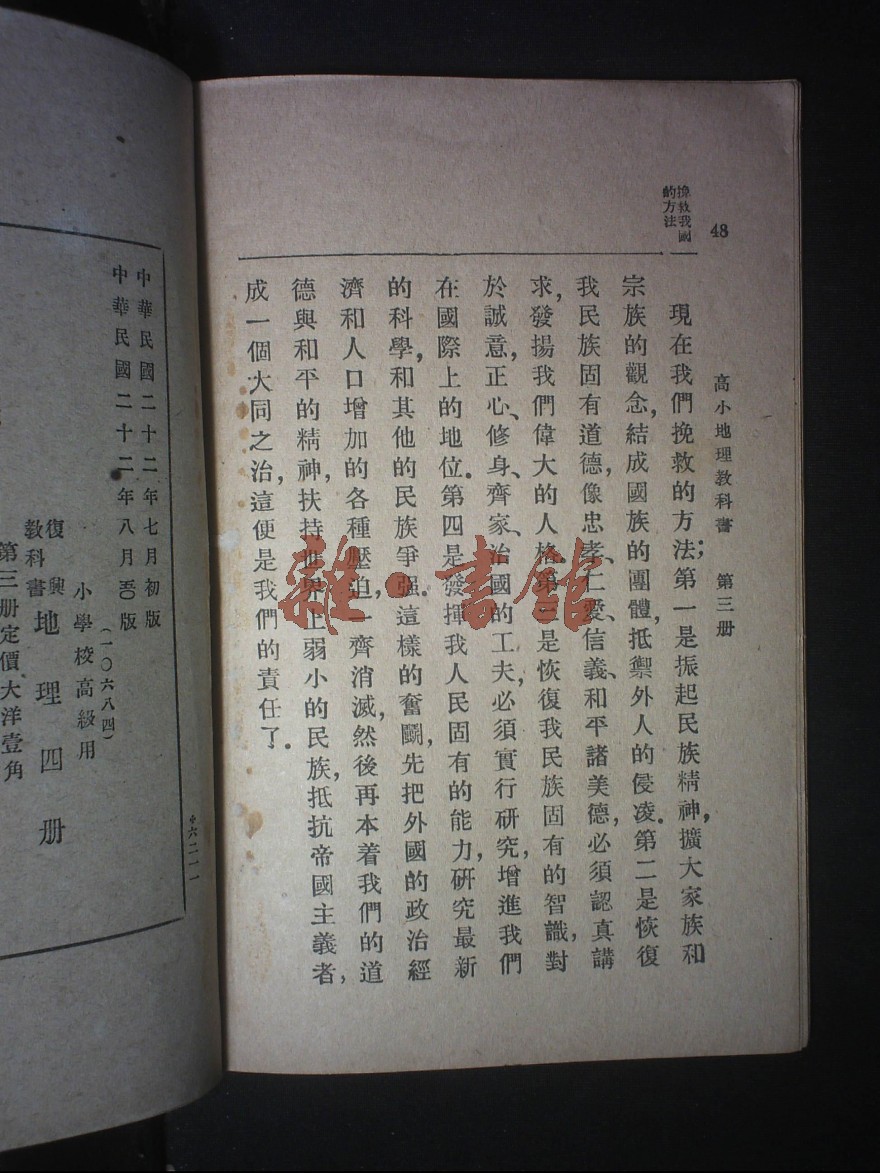 48
高小地理教科書　第三册
挽救我國
的方法
現在我們挽救的方法；第一是振起民族精神，擴大家族和
宗族的觀念，結成國族的團體，抵禦外人的侵凌．第二是恢復
我民族固有道德，像忠孝、仁愛、信義、和平諸美德，必須認真講
求，發揚我們偉大的人格．第三是恢復我民族固有的智識，對
於誠意，正心、修身、齊家、治國的工夫，必須實行研究，增進我們
在國際上的地位．第四是發揮我人民固有的能力，研究最新
的科學，和其他的民族爭强．這樣的奮鬭，先把外國的政治經
濟和人口增加的各種壓迫，一齊消滅，然後再本着我們的道
德與和平的精神，扶持世界上弱小的民族，抵抗帝國主義者，
成一個大同之治，這便是我們的責任了．
雜·書館
中華民國二十二年七月初版
中華民國二十二年八月五〇版
(一〇六八四)
小學校高級用
復興
教科書
地理四册
第三册定價大洋壹角
六二一一